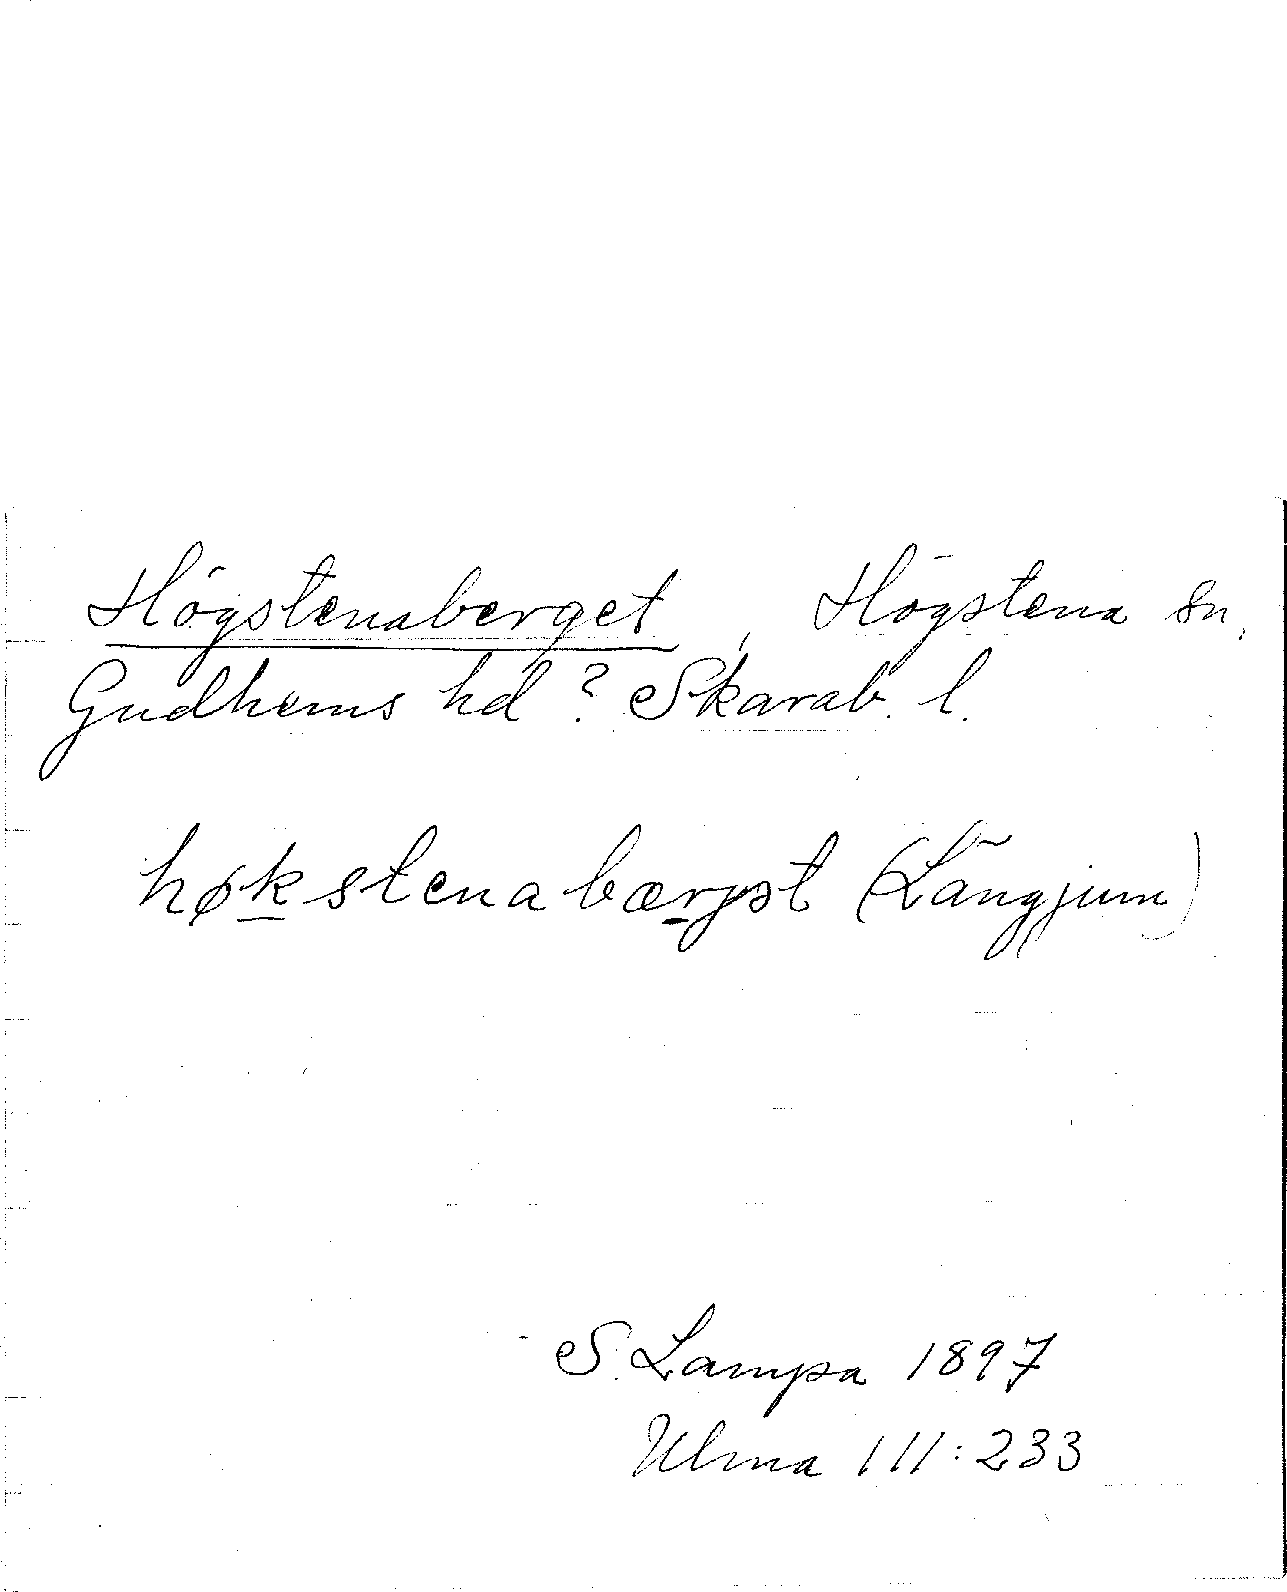 Högstenaberget, Högstena sn,
Gudhems hd? Skarab. l.
høkstenabærjət (Långjum)
S. Lampa 1897
Ulma 111:233